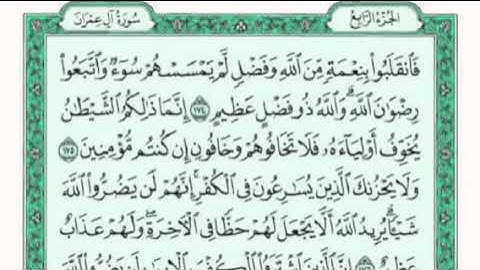 سُورَةُ آلِ عِمْرَانَ
الجُزْءُ الرَّابِعُ
فَٱنقَلَبُوا۟ بِنِعْمَةٍ مِّنَ ٱللَّهِ وَفَضْلٍ لَّمْ يَمْسَسْهُمْ سُوٓءٌ وَٱتَّبَعُوا۟
رِضْوَٰنَ ٱللَّهِ ۗ وَٱللَّهُ ذُو فَضْلٍ عَظِيمٍ ١٧٤ إِنَّمَا ذَٰلِكُمُ ٱلشَّيْطَٰنُ
يُخَوِّفُ أَوْلِيَآءَهُۥ فَلَا تَخَافُوهُمْ وَخَافُونِ إِن كُنتُم مُّؤْمِنِينَ ١٧٥
وَلَا يَحْزُنكَ ٱلَّذِينَ يُسَٰرِعُونَ فِى ٱلْكُفْرِ ۚ إِنَّهُمْ لَن يَضُرُّوا۟ ٱللَّهَ
شَيْـًٔا ۗ يُرِيدُ ٱللَّهُ أَلَّا يَجْعَلَ لَهُمْ حَظًّا فِى ٱلْـَٔاخِرَةِ ۖ وَلَهُمْ عَذَابٌ